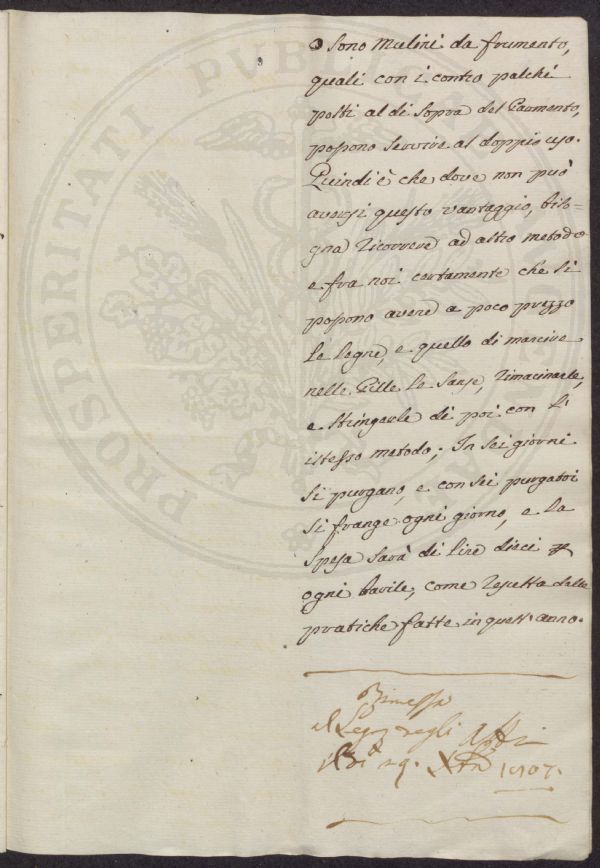 o sono Mulini da frumento,
quali con i contro palchi
posti al di sopra del Pavimento,
possono servire al doppio uso.
Quindi è che dove non può
aversi questo vantaggio, biso=
gna ricorrere ad altro metodo
e fra noi certamente che si
possono avere a poco prezzo
le legne, e quello di marcire
nelle Pille le Sanse, rimacinarle,
e stringerle di poi con li
istesso metodo; In sei giorni
si purgano, e con sei purgatoi
si frange ogni giorno, e la
spesa sarà di lire dieci
ogni barile, come resulta dalle
pratiche fatte in quest'anno.
Rimessa
al degli Atti
1807.
PROSPERITATI PUBLICAE